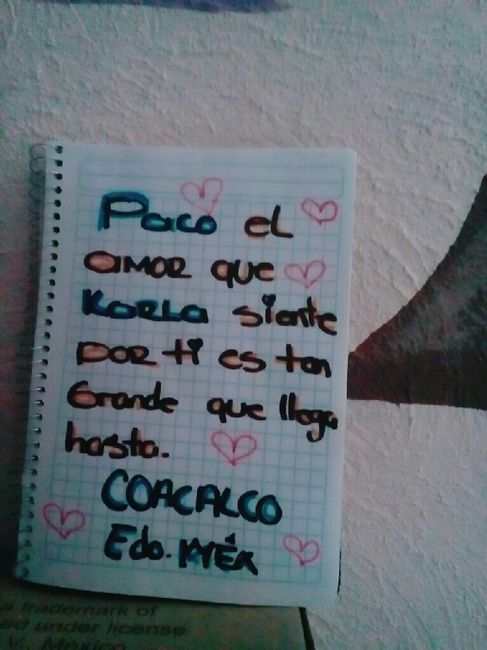 Paco el
amor que
Karla siente
por ti es tan
Grande que llega
hasta.
COACALCO
Edo. MÉX
s trademark of
ed under license
V., Mexico